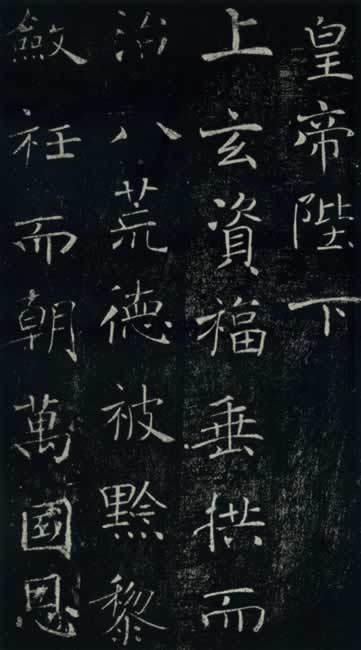 皇帝陛下
上玄資福垂拱而
治八荒德被黔黎
斂衽而朝萬國恩